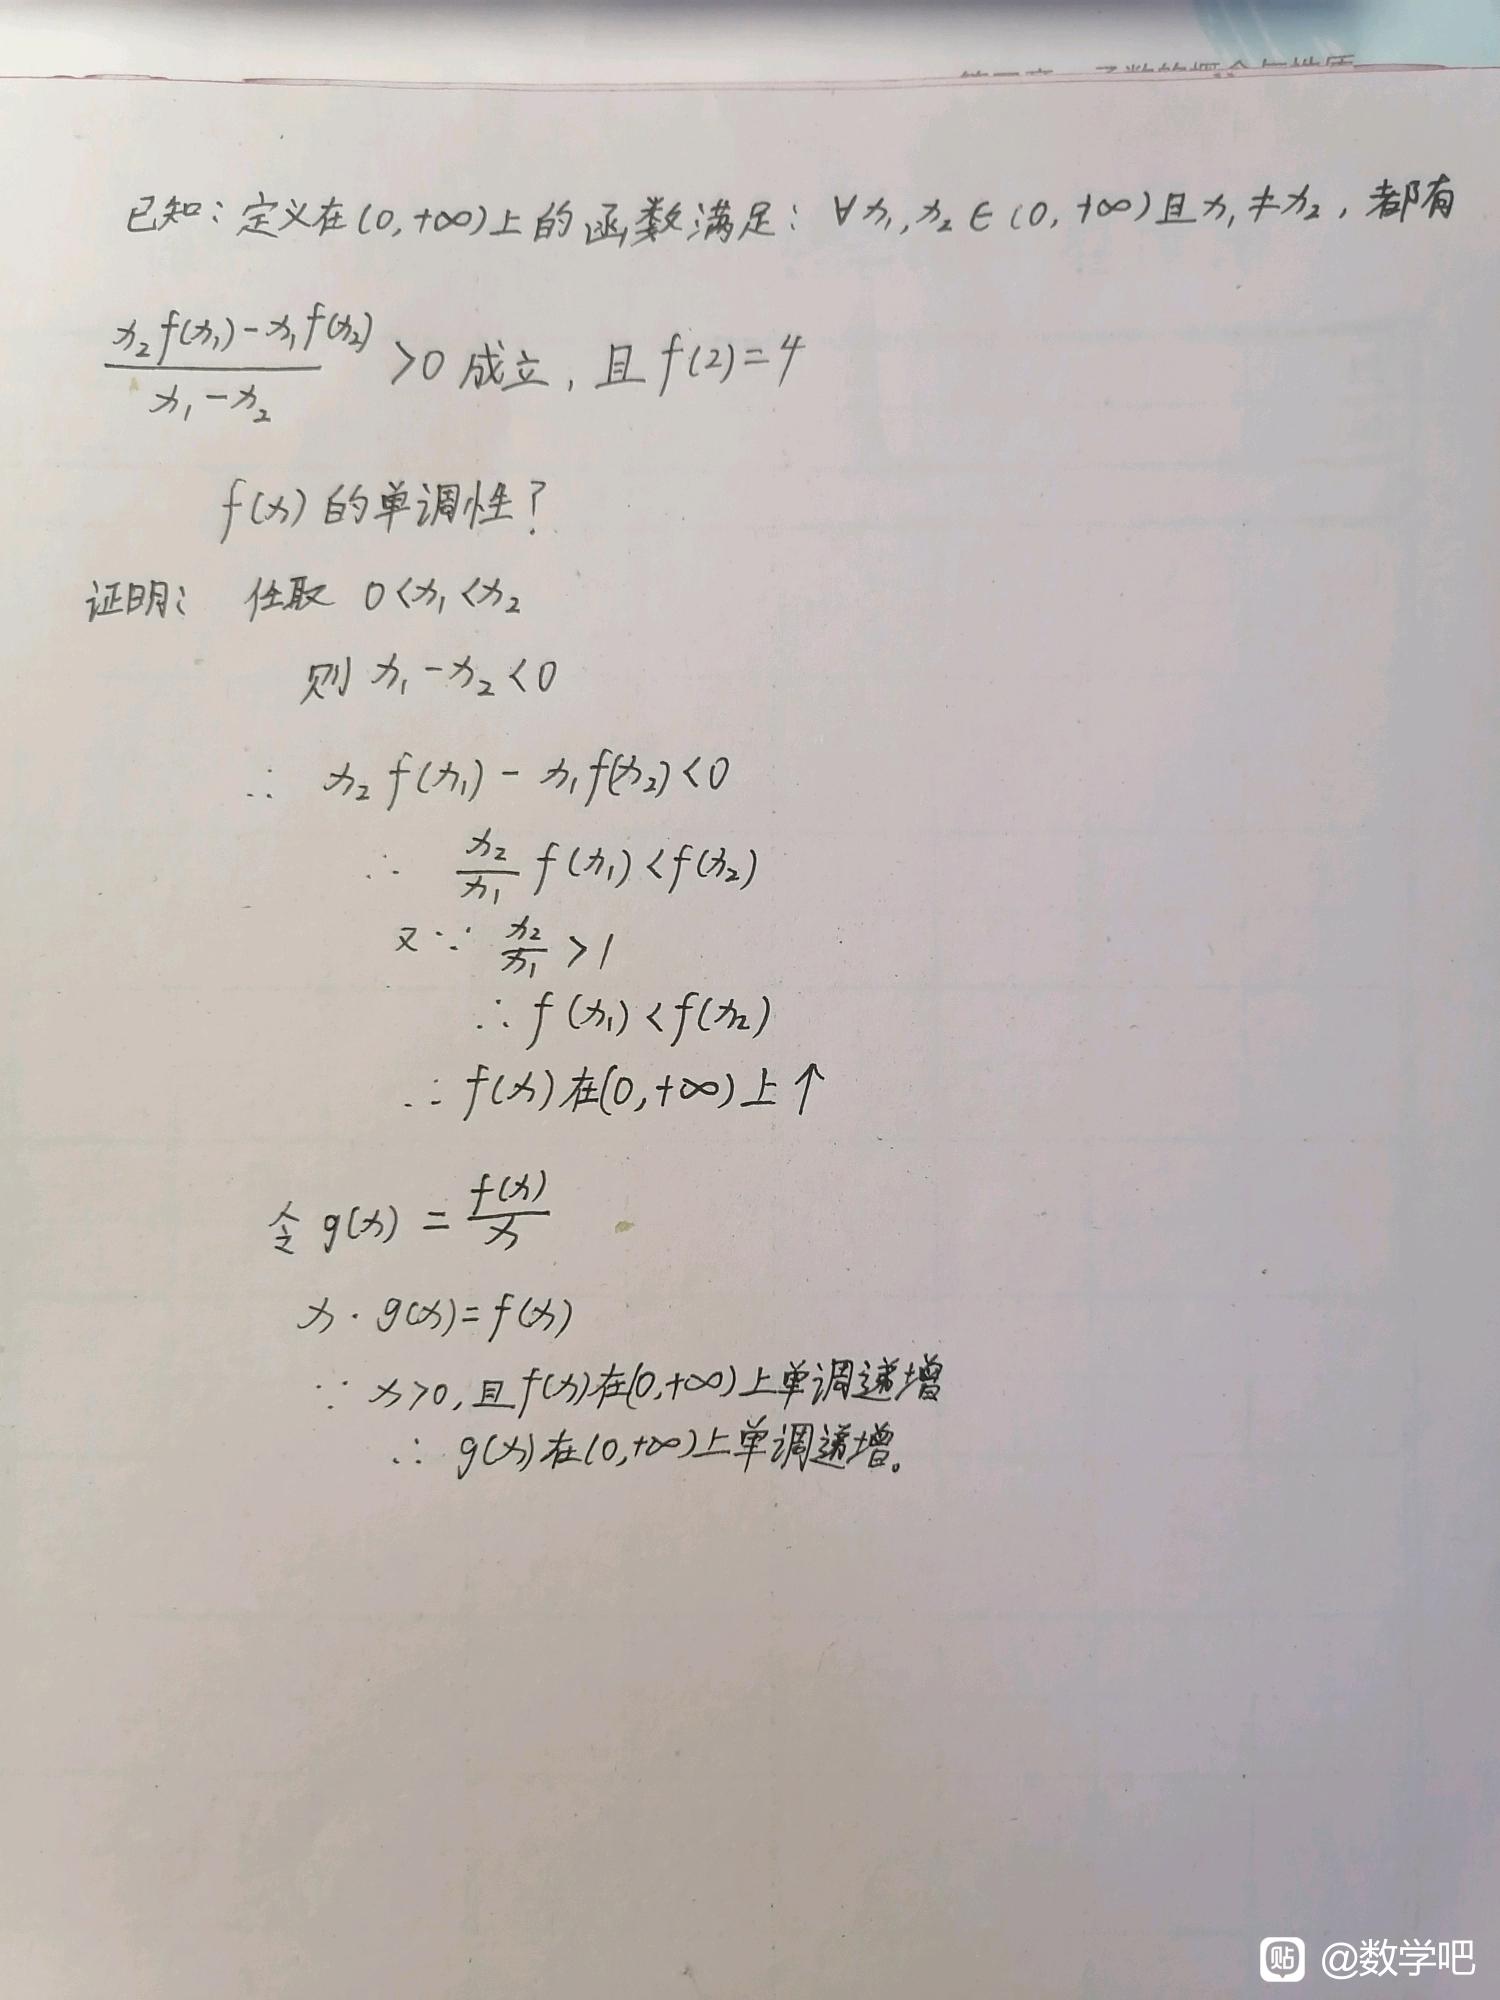 已知：定义在(0,+∞)上的函数满足：∀x₁,x₂∈(0,+∞)且x₁≠x₂，都有
(x₂f(x₁)-x₁f(x₂))/(x₁-x₂)>0成立，且f(2)=4
f(x)的单调性？
证明：任取 0<x₁<x₂
则 x₁-x₂<0
∴ x₂f(x₁)-x₁f(x₂)<0
∴ x₂/x₁ f(x₁)<f(x₂)
又∵ x₂/x₁ >1
∴ f(x₁)<f(x₂)
∴ f(x)在(0,+∞)上↑
令 g(x)=f(x)/x
x·g(x)=f(x)
∵ x>0,且f(x)在(0,+∞)上单调递增
∴ g(x)在(0,+∞)上单调递增。
贴 @数学吧